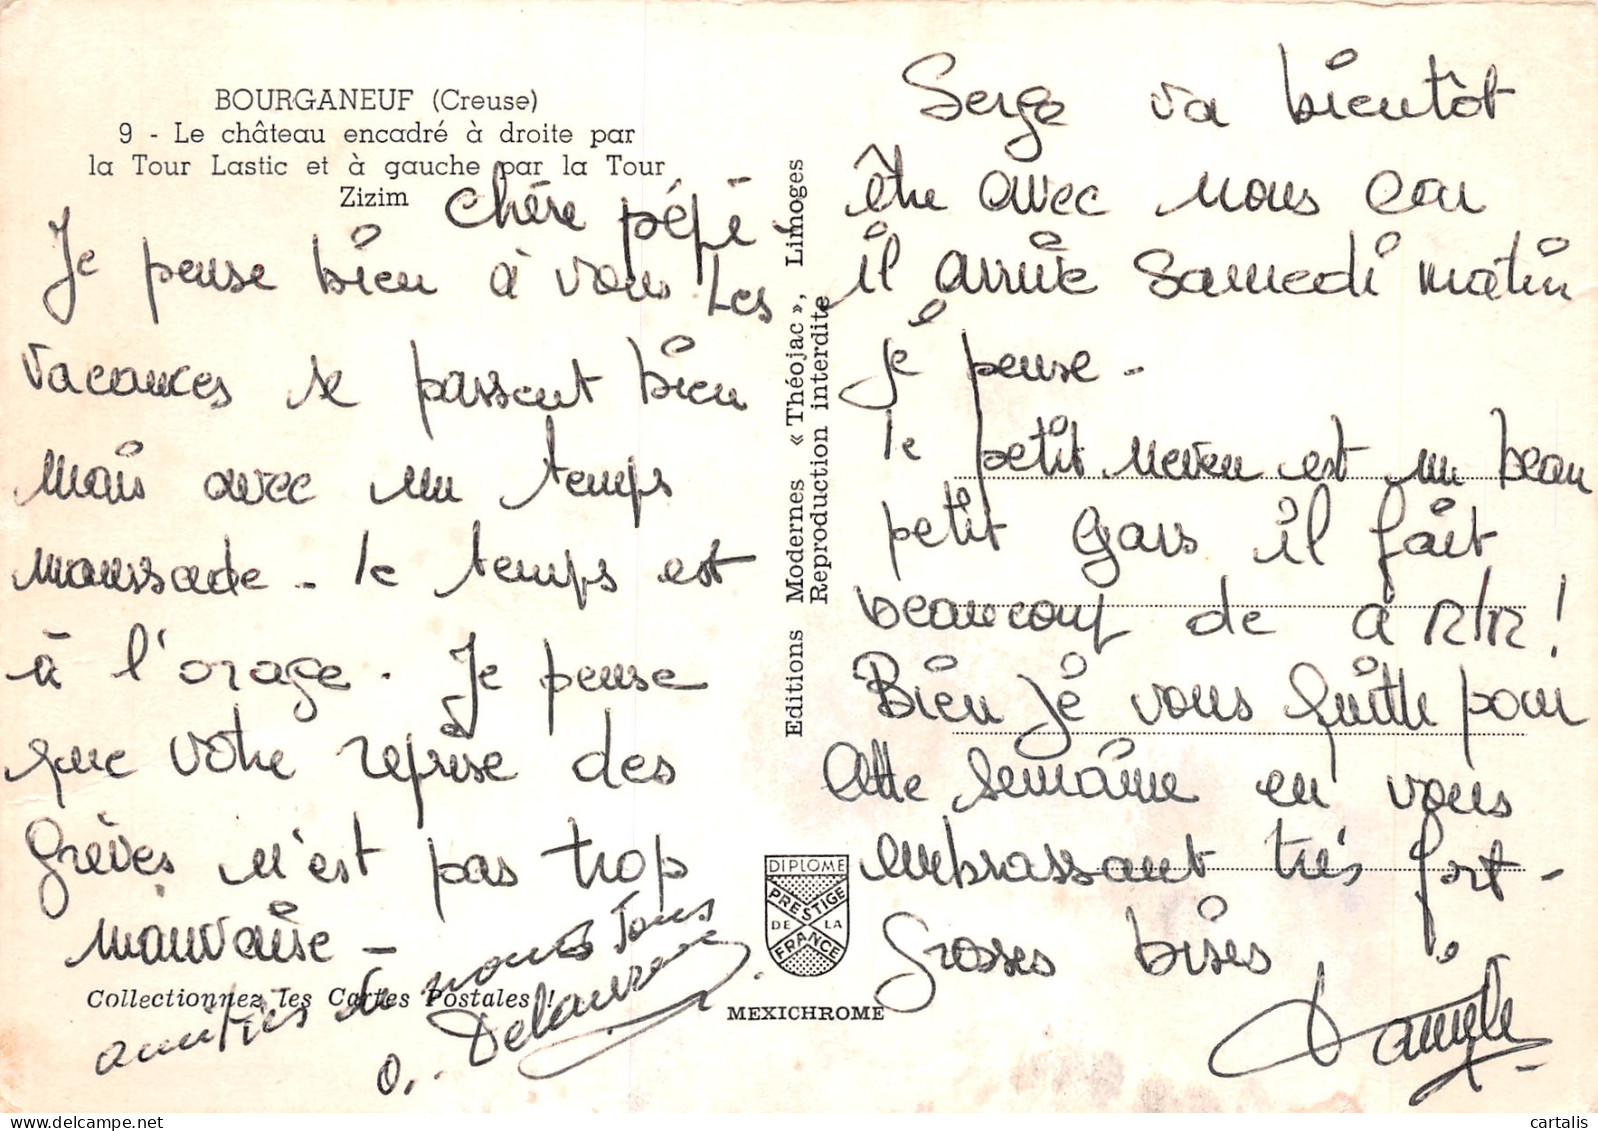 BOURGANEUF (Creuse)
9 - Le château encadré à droite par
la Tour Lastic et à gauche par la Tour
Zizim
Chère pépé -
Je pense bien à vous Les
vacances se passent bien
mais avec un temps
maussade - le temps est
à l'orage. Je pense
que votre reprise des
grèves n'est pas trop
mauvaise -
amitiés de nous Tous
Collectionnez les Cartes Postales !
Editions Modernes « Théojac », Limoges
Reproduction interdite
DIPLOME
PRESTIGE
DE LA
FRANCE
MEXICHROME
Serge va bientôt
être avec nous car
il arrive Samedi matin
je pense -
le petit neveu est un beau
petit gars il fait
beaucoup de
Bien je vous quitte pour
cette semaine en vous
embrassant très fort -
Grosses bises
Danièle
cartalis